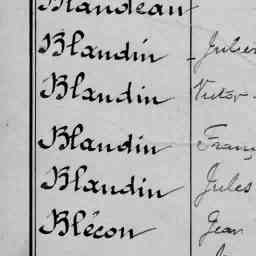 Blaudeau
Blaudin Julien
Blaudin Victor
Blaudin Franç
Blaudin Jules
Blécon Jean